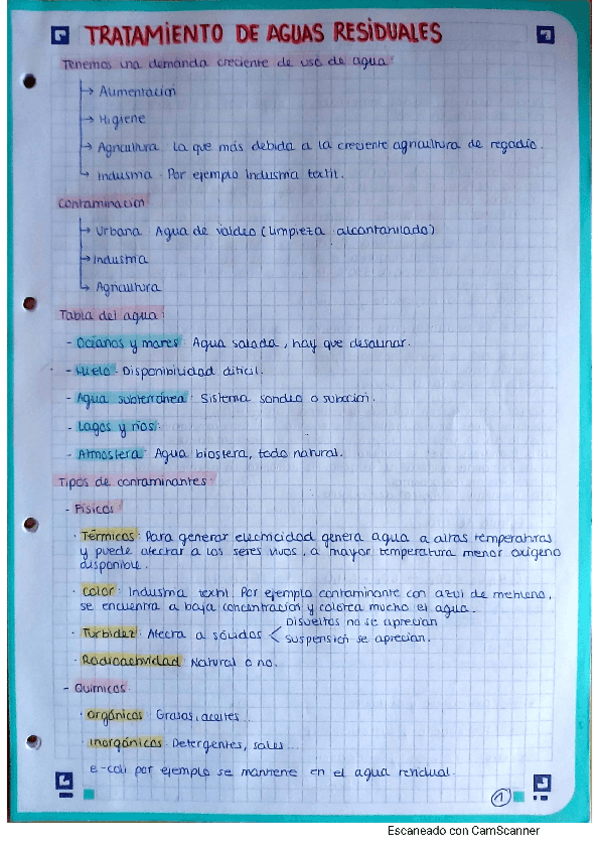 TRATAMIENTO DE AGUAS RESIDUALES
Tenemos una demanda creciente de uso de agua:
→ Alimentación
→ Higiene
→ Agricultura. La que más debida a la creciente agricultura de regadío.
→ Industria. Por ejemplo industria textil.
Contaminación
→ Urbana. Agua de valdeo (limpieza alcantarillado)
→ Industria
→ Agricultura
Tabla del agua:
- Océanos y mares: Agua salada, hay que desalinar.
- Hielo. Disponibilidad difícil.
- Agua subterránea: Sistema sondeo o
- Lagos y ríos.
- Atmosfera: Agua biosfera, todo natural.
Tipos de contaminantes:
- Físicos
· Térmicos: Para generar electricidad genera agua a altas temperaturas
y puede afectar a los seres vivos, a mayor temperatura menor oxígeno
disponible.
· Color: Industria textil. Por ejemplo contaminante con azul de metileno,
se encuentra a baja concentración y colorea mucho el agua.
· Turbidez: Afecta a sólidos < Disueltos no se aprecian
suspensión se aprecian.
· Radioactividad: Natural o no.
- Químicos.
· Orgánicos: Grasas, aceites...
· Inorgánicos: Detergentes, sales...
e-coli por ejemplo se mantiene en el agua residual.
1
Escaneado con CamScanner